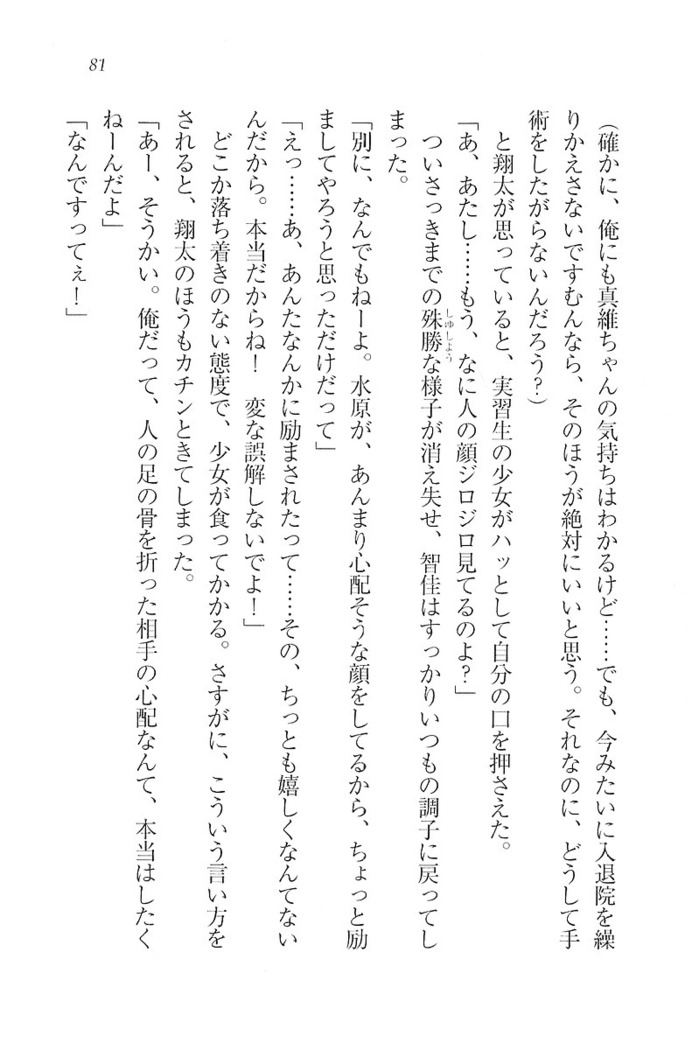 81
（確かに、俺にも真維ちゃんの気持ちはわかるけど……でも、今みたいに入退院を繰
りかえさないですむんなら、そのほうが絶対にいいと思う。それなのに、どうして手
術をしたがらないんだろう？）
と翔太が思っていると、実習生の少女がハッとして自分の口を押さえた。
「あ、あたし……もう、なに人の顔ジロジロ見てるのよ？」
ついさっきまでの殊勝な様子が消え失せ、智佳はすっかりいつもの調子に戻ってし
しゅしょう
まった。
「別に、なんでもねーよ。水原が、あんまり心配そうな顔をしてるから、ちょっと励
ましてやろうと思っただけだって」
「えっ……あ、あんたなんかに励まされたって……その、ちっとも嬉しくなんてない
んだから。本当だからね！　変な誤解しないでよ！」
どこか落ち着きのない態度で、少女が食ってかかる。さすがに、こういう言い方を
されると、翔太のほうもカチンときてしまった。
「あー、そうかい。俺だって、人の足の骨を折った相手の心配なんて、本当はしたく
ねーんだよ」
「なんですってぇ！」